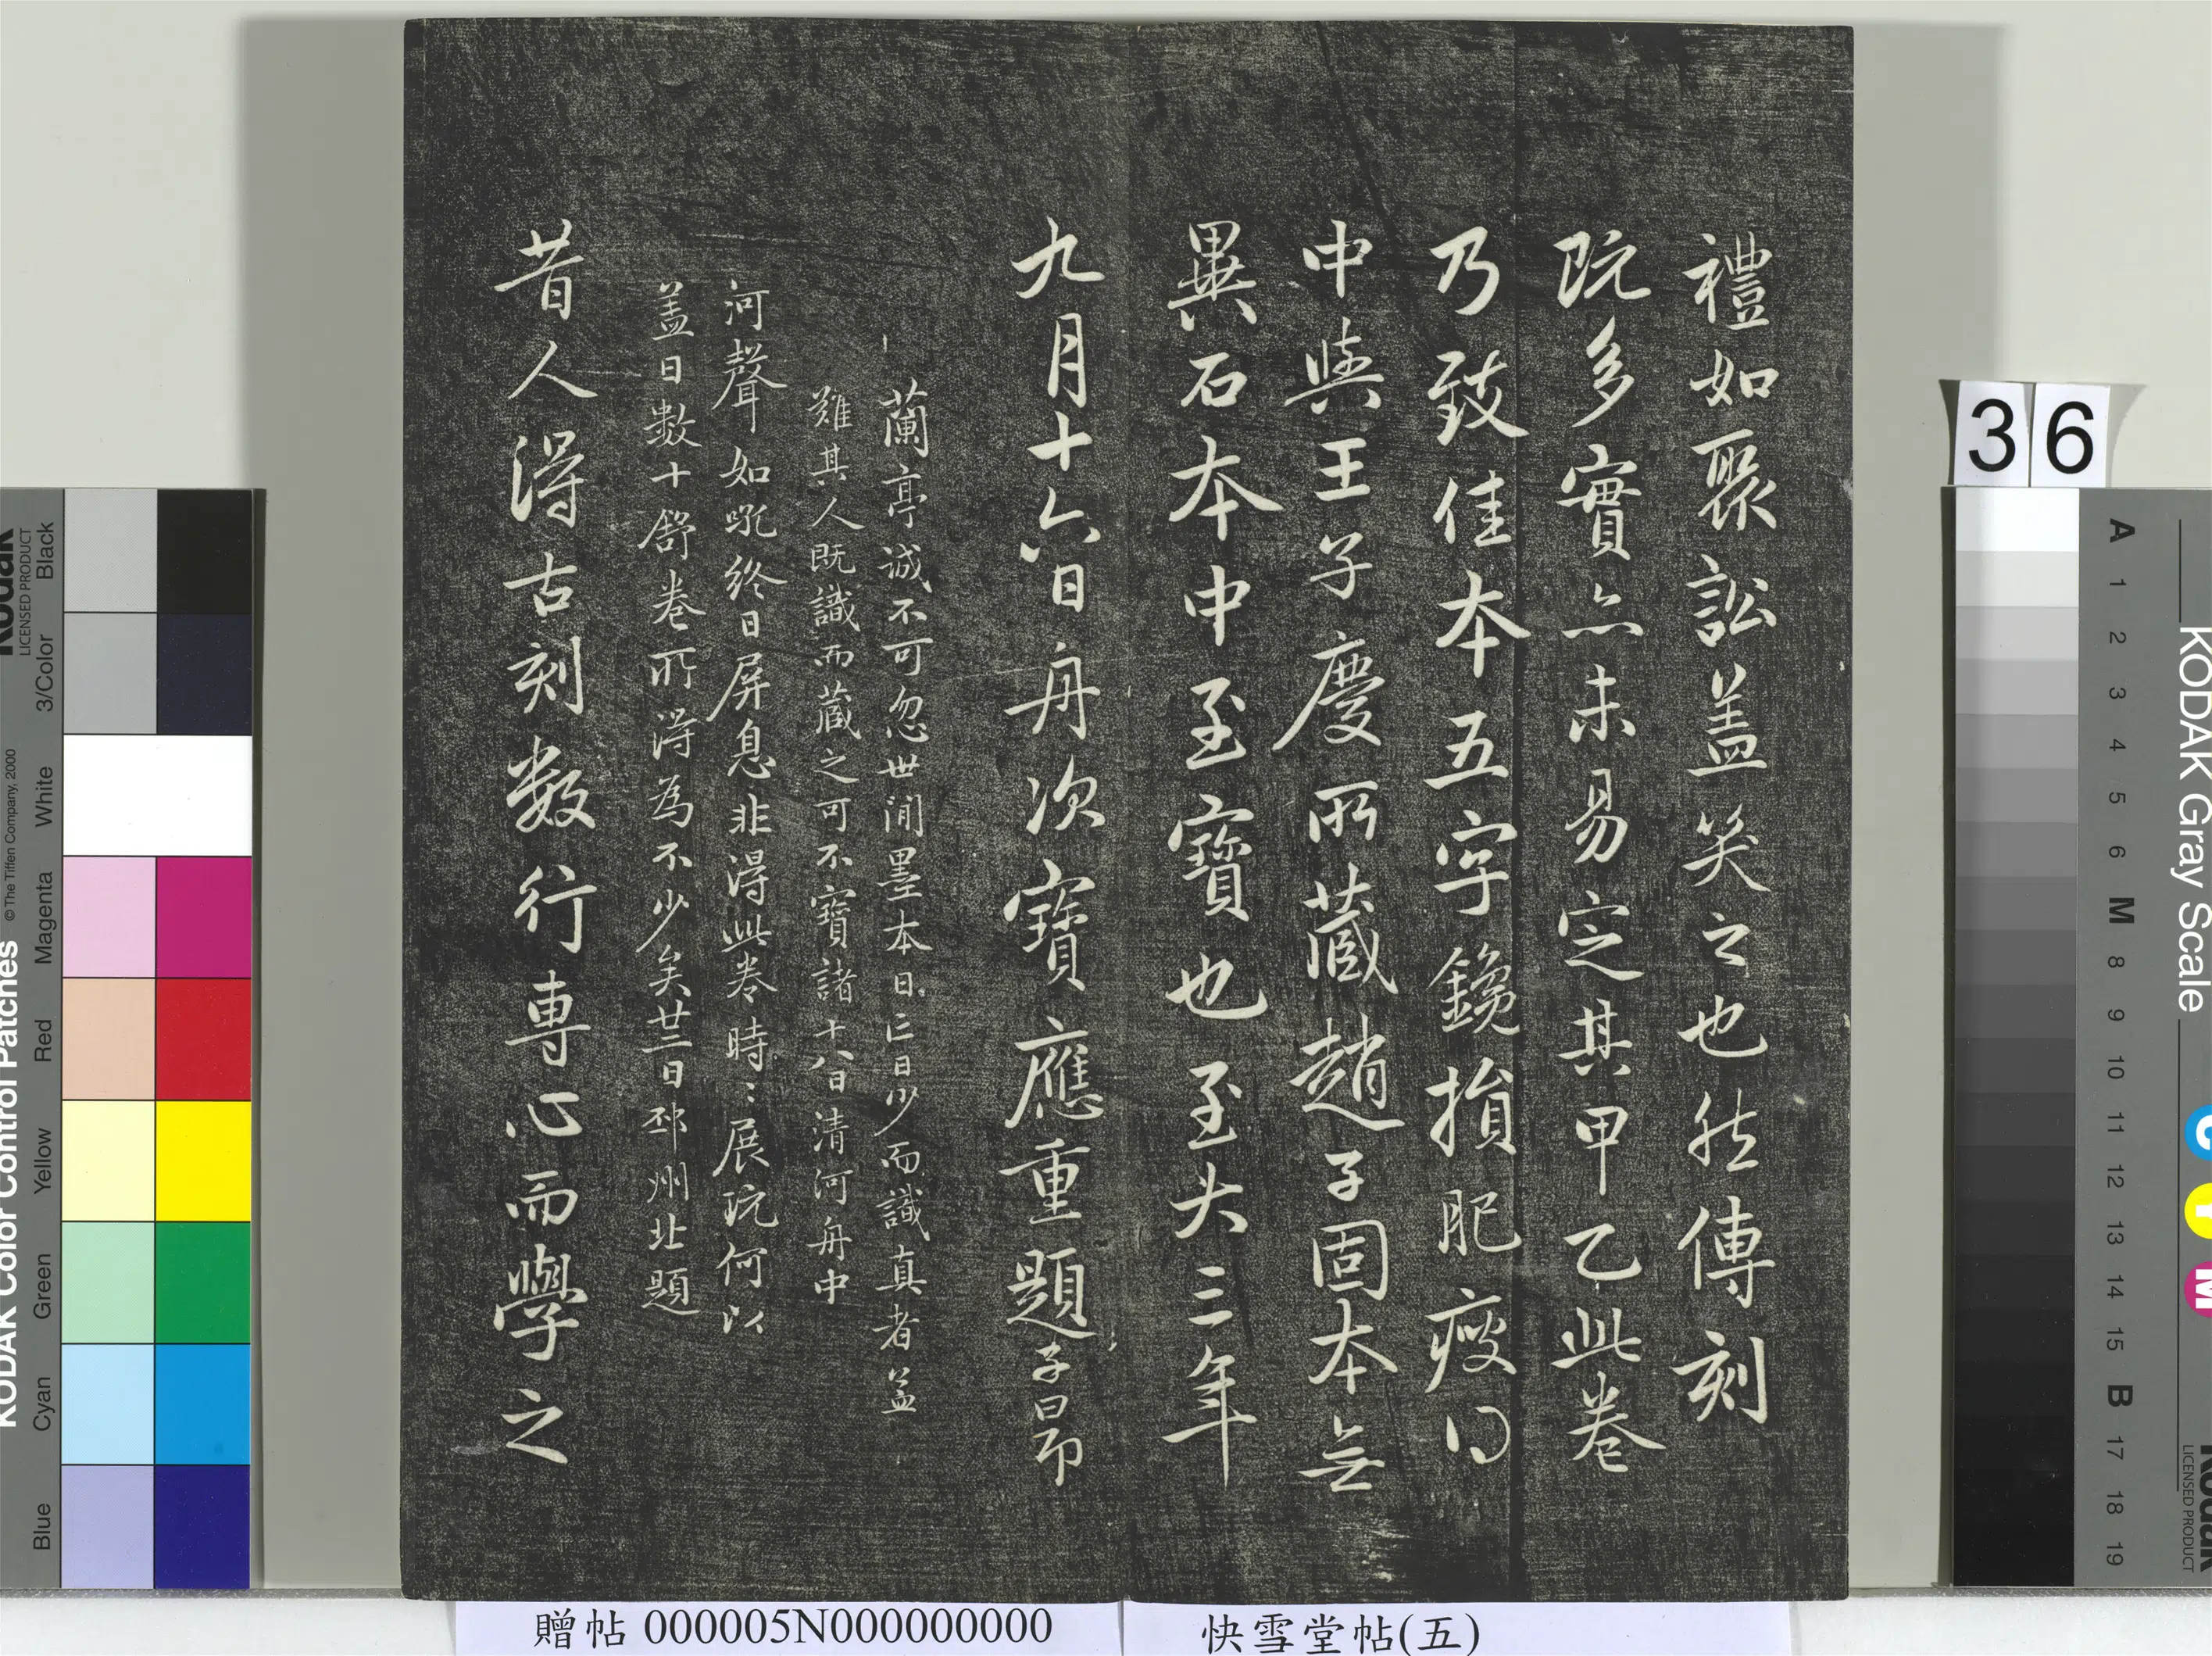 禮如聚訟盖笑之也然傳刻
既多實亦未易定其甲乙此卷
乃致佳本五字鑱損肥瘦得
中與王子慶所藏趙子固本無
異石本中至寶也至大三年
九月十六日舟次寶應重題子昂
蘭亭誠不可忽世間墨本日亡日少而識真者益
難其人既識而藏之可不寶諸十八日清河舟中
河聲如吼終日屏息非得此卷時〻展玩何以
盖日數十舒卷所得為不少矣廿二日邳州北題
昔人得古刻数行專心而學之
36
快雪堂帖(五)
贈帖 000005N000000000
KODAK Color Control Patches
© The Tiffen Company, 2000
Kodak
LICENSED PRODUCT
Black
3/Color
White
Magenta
Red
Yellow
Green
Cyan
Blue
KODAK Gray Scale
C
Y
M
Kodak
LICENSED PRODUCT
A 1 2 3 4 5 6 M 8 9 10 11 12 13 14 15 B 17 18 19